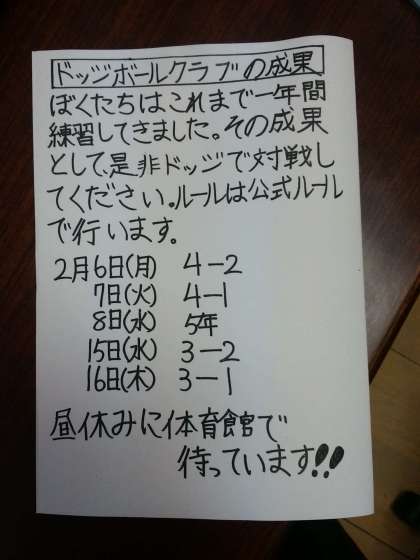 ドッジボールクラブの成果
ぼくたちはこれまで一年間
練習してきました。その成果
として、是非ドッジで対戦し
てください。ルールは公式ルール
で行います。
2月6日(月) 4-2
7日(火) 4-1
8日(水) 5年
15日(水) 3-2
16日(木) 3-1
昼休みに体育館で
待っています!!